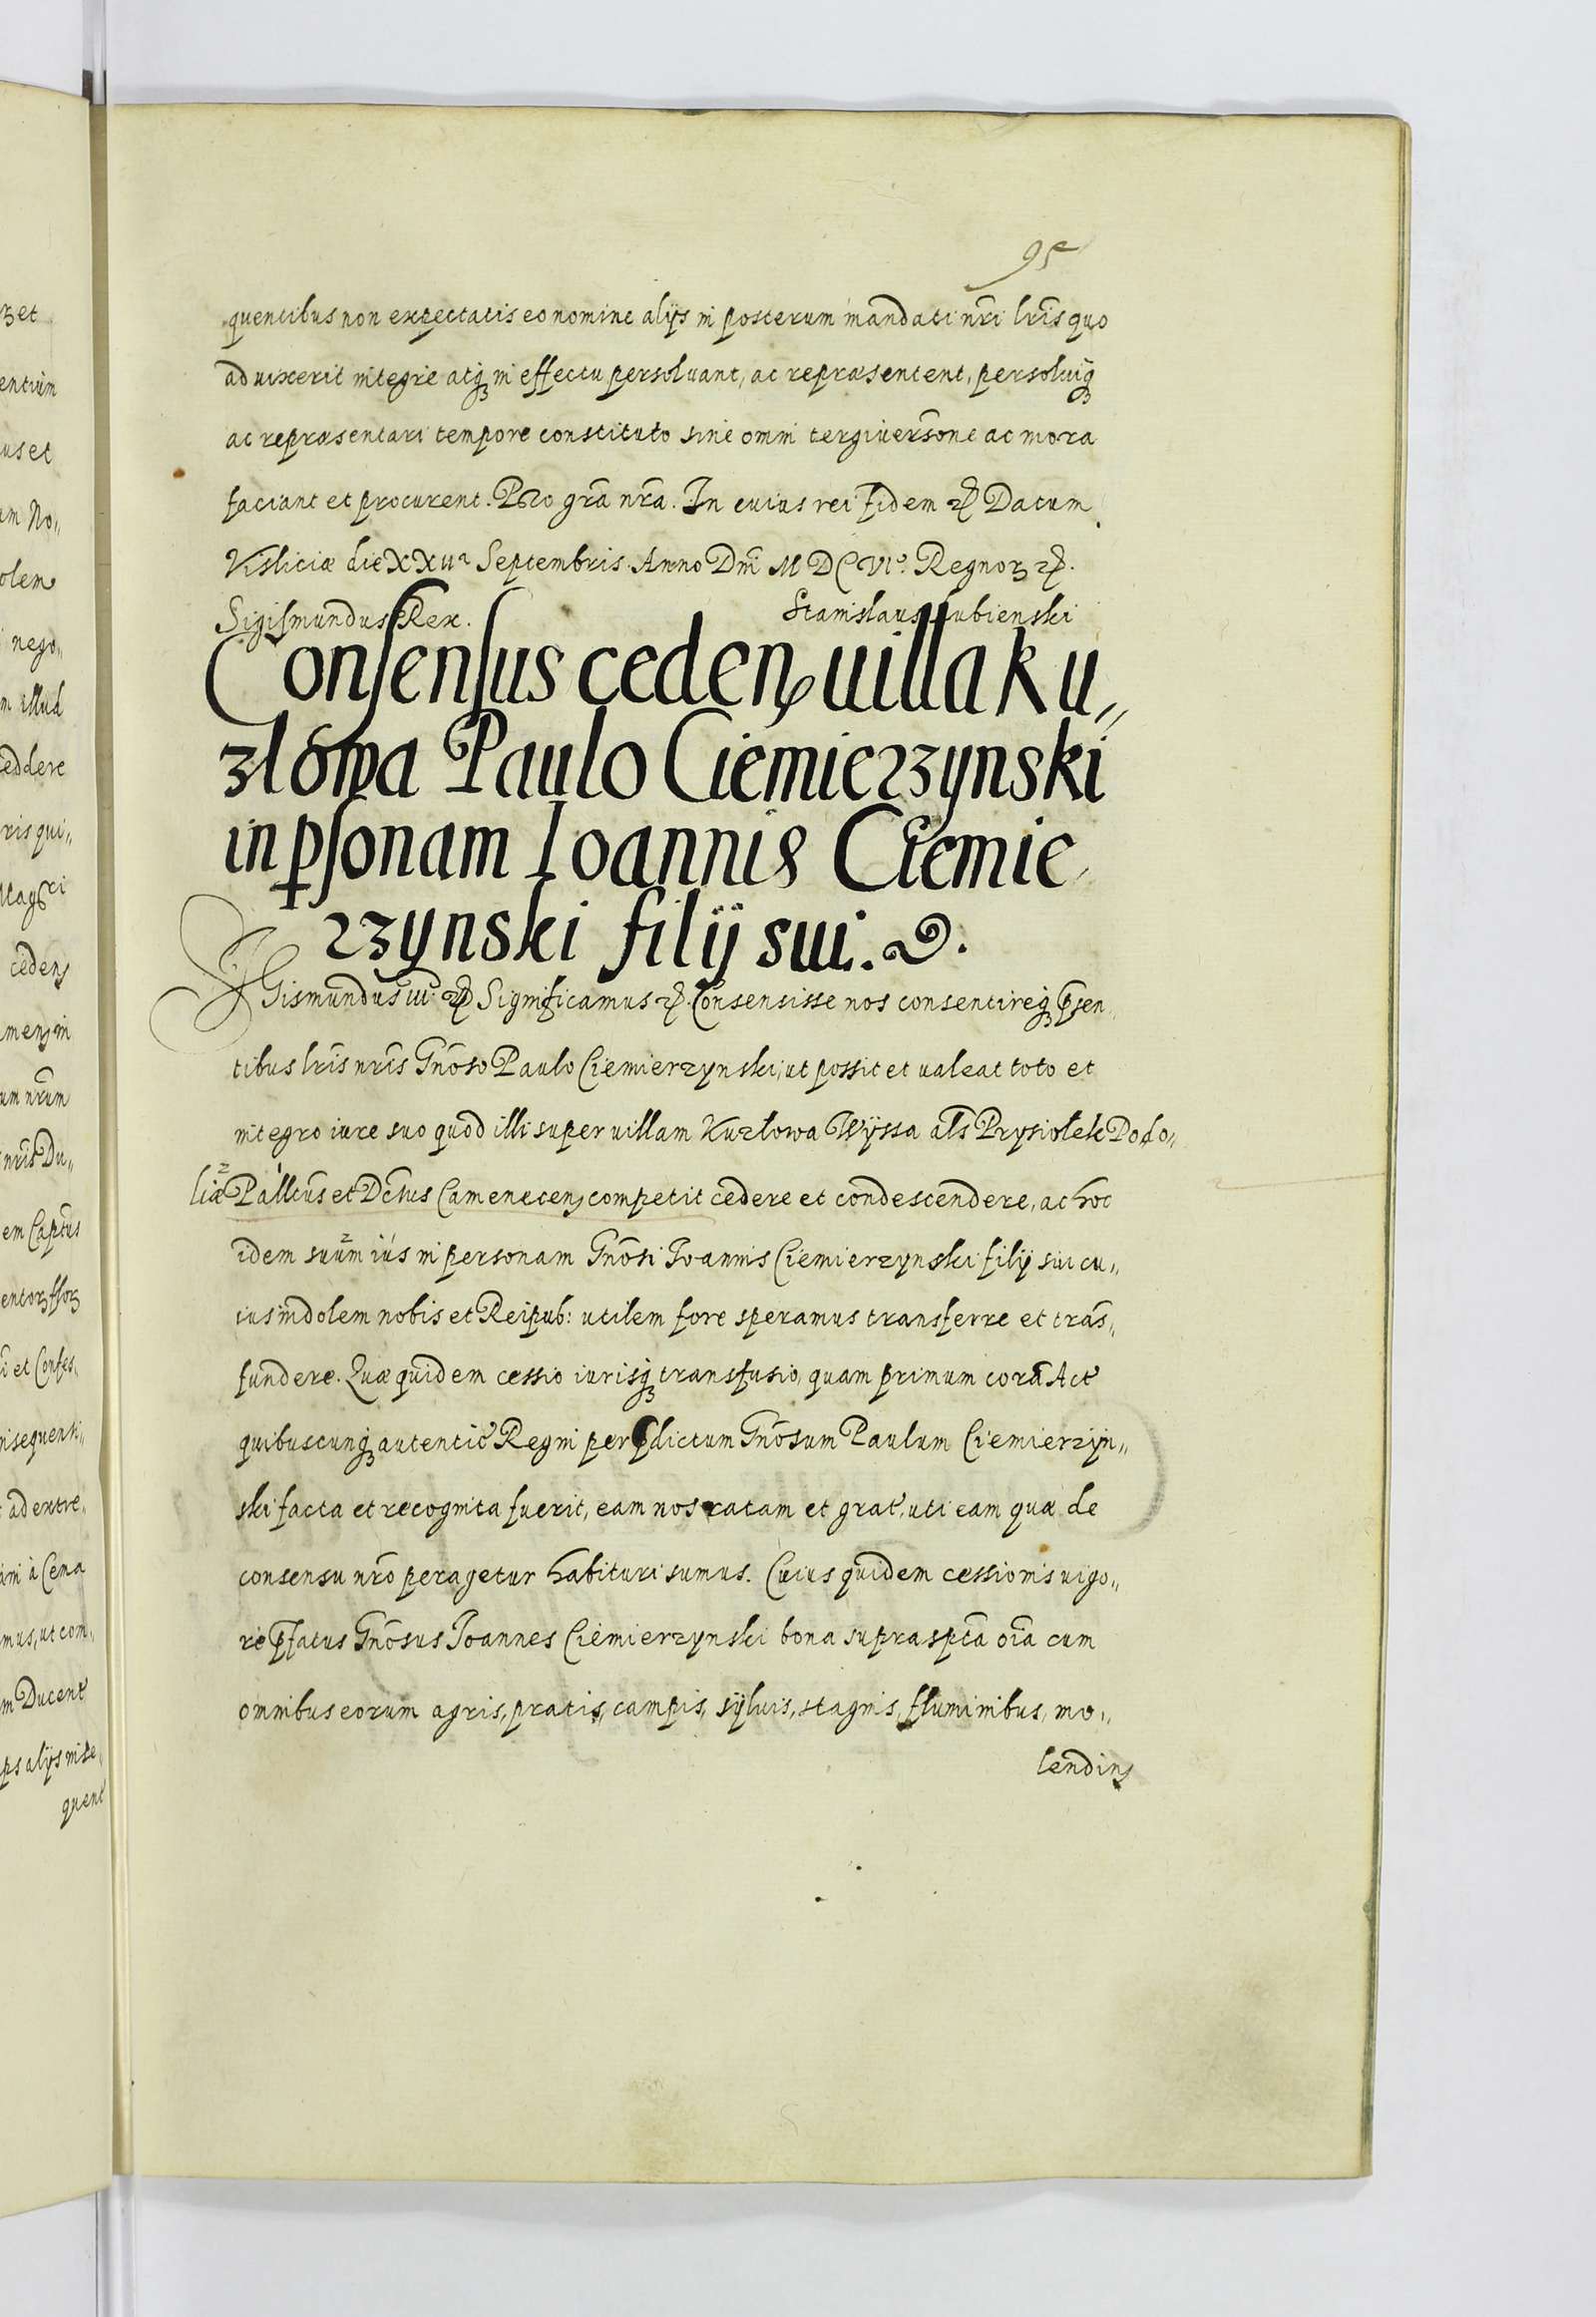 95
quentibus non expectatis eo nomine alijs in posterum mandati nr̃i lr̃is quo
ad uixerit integre atq₃ in effectu persoluant, ac repræsentent, persoluiq₃
ac repræsentari tempore constituto sine omni tergiuersõne ac mora
faciant et procurent. Pro gr̃a nr̃a. In cuius rei fidem ꝛ Datum
Visliciæ die XXVIIa Septembris Anno Dnĩ MDCVIo. Regnoꝝ ꝛ.
Sigismundus Rex. Stanislaus Lubienski
Consensus ceden. uilla Ku„
złowa Paulo Ciemierzynski
in ꝑsonam Ioannis Ciemie
rzynski filij sui.
Sigismundus III. ꝛ Significamus ꝛ. Consensisse nos consentireq₃ p̃sen„
tibus lr̃is nr̃is Gnõso Paulo Ciemierzynski, ut possit et ualeat toto et
integro iure suo quod illi super uillam Kuzłowa Wyssa als̃ Prysiołek Podo„
liæ Pallt̃us et Dc̃tus Camenecen. competit cedere et condescendere, ac hoc
idem suum ius in personam Gnõsi Ioannis Ciemierzynski filij sui cu„
ius indolem nobis et Reipub: utilem fore speramus transferre et trãs„
fundere. Quæ quidem cessio iurisq₃ transfusio, quam primum corã Act
quibuscunq₃ autentic̃ Regni per p̃dictum Gnõsum Paulum Ciemierzyn„
ski facta et recognita fuerit, eam nos ratam et grat, uti eam quæ de
consensu nr̃o peragetur habituri sumus. Cuius quidem cessionis uigo„
re p̃fatus Gnõsus Ioannes Ciemierzynski bona supraspc̃ta oĩa cum
omnibus eorum agris, pratis, campis, syluis, stagnis, fluminibus, mo„
lendin.